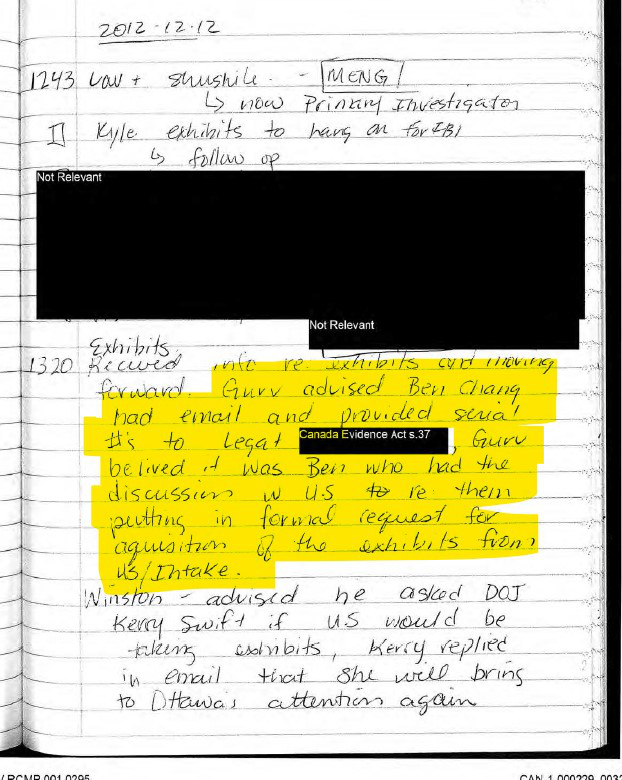 2012-12-12
1243 Vav + Shushile. - MENG
↳ now Primary Investigator
Kyle exhibits to hang on for FBI
↳ follow up
Not Relevant
Not Relevant
Exhibits.
1320 Recieved info re. exhibits and moving
forward. Gurv advised Ben Chang
had email and provided serial
#'s to Legat Canada Evidence Act s.37 , Gurv
belived it was Ben who had the
discussion w US to re them
putting in formal request for
aquisition of the exhibits from
us/Intake.
Winston - advised he asked DOJ
Kerry Swift if US would be
taking exhibits, Kerry replied
in email that she will bring
to Ottawa's attention again
/ RCMP 001 0295
CAN-1 000229 003